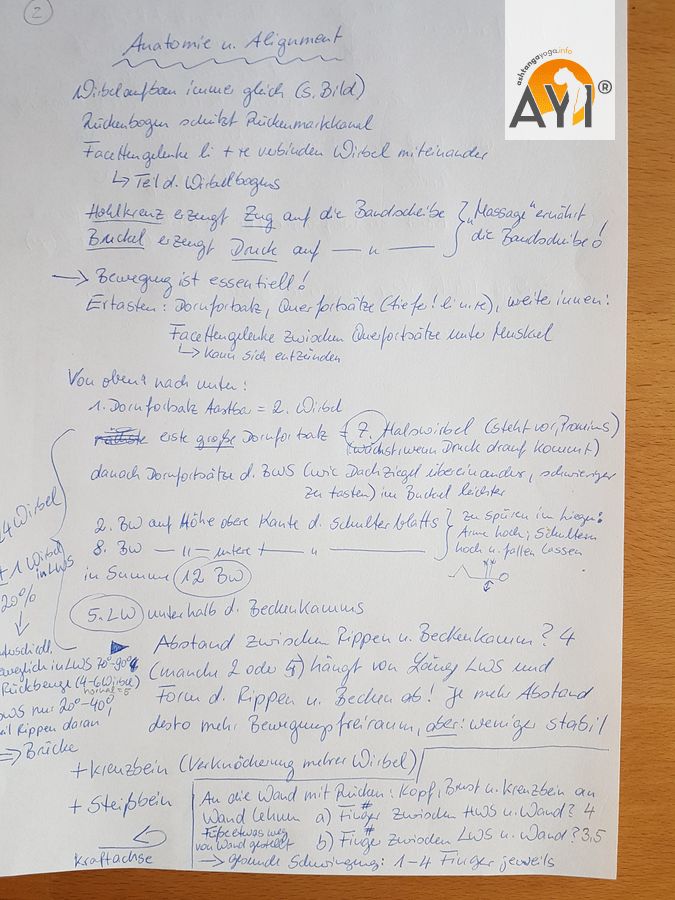 2
Anatomie u. Alignment
ashtangayoga.info
AYI®
Wirbelaufbau immer gleich (s. Bild)
Rückenbogen schützt Rückenmarkkanal
Facettengelenke li + re verbinden Wirbel miteinander
↳ Teil d. Wirbelbogens
Hohlkreuz erzeugt Zug auf die Bandscheibe
Buckel erzeugt Druck auf — " —
} "Massage" ernährt
die Bandscheibe!
→ Bewegung ist essentiell!
Ertasten: Dornfortsatz, Querfortsätze (tiefe! li u. re), weiter innen:
Facettengelenke zwischen Querfortsätze unter Muskel
↳ kann sich entzünden
Von oben nach unten:
1. Dornfortsatz tastbar = 2. Wirbel
erste große Dornfortsatz = 7. Halswirbel (steht vor, Promins)
(wächst, wenn Druck drauf kommt)
danach Dornfortsätze d. BWS (wie Dachziegel übereinander, schwieriger
zu tasten) im Buckel leichter
2. BW auf Höhe obere Kante d. Schulterblatts
8. BW — " — untere — " —
} zu spüren im Liegen:
Arme hoch, Schultern
hoch u. fallen lassen
in Summe 12 BW
5. LW unterhalb d. Beckenkamms
4 Wirbel
+ 1 Wirbel
in LWS
20%
↓
Abstand zwischen Rippen u. Beckenkamm? 4
(manche 2 oder 5) hängt von Länge LWS und
Form d. Rippen u. Becken ab! Je mehr Abstand
desto mehr Bewegungsfreiraum, aber: weniger stabil
beweglich in LWS 70°-90°
Rückbeuge (4-6 Wirbel)
normal = 5
BWS nur 20°-40°
weil Rippen daran!
⇒ Brücke
+ Kreuzbein (Verknöcherung mehrer Wirbel)
+ Steißbein
Kraftachse
An die Wand mit Rücken: Kopf, Brust u. Kreuzbein an
Wand lehnen a) # Finger zwischen HWS u. Wand? 4
Füße etwas weg
von Wand gestellt b) # Finger zwischen LWS u. Wand? 3,5
→ gesunde Schwingung: 1-4 Finger jeweils